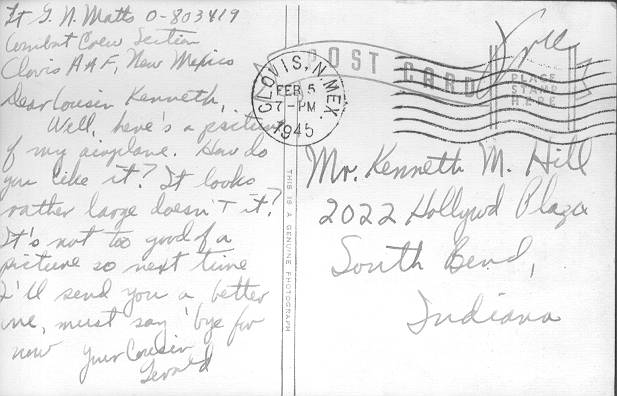 Lt G. N. Matts O-803419
Combat Crew Section
Clovis AAF, New Mexico
Dear Cousin Kenneth,
Well, here's a picture
of my airplane. How do
you like it? It looks
rather large doesn't it?
It's not too good of a
picture so next time
I'll send you a better
one, must say 'bye for
now your Cousin
Gerald
THIS IS A GENUINE PHOTOGRAPH
POST CARD
CLOVIS, N. MEX.
FEB 5
7-PM
1945
Free
PLACE
STAMP
HERE
Mr. Kenneth M. Hill
2022 Hollywd Plaza
South Bend,
Indiana